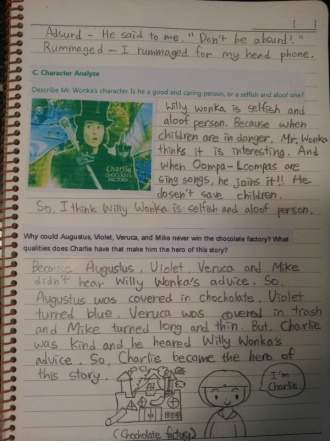 Absurd - He said to me. "Don't be absurd!"
Rummaged - I rummaged for my hand phone.
C. Character Analyze
Describe Mr. Wonka's character. Is he a good and caring person, or a selfish and aloof one?
Willy wonka is selfish and
aloof person. Because when
children are in danger, Mr. Wonka
thinks it is interesting. And
when Oompa-Loompas are
sing songs, he joins it!! He
dosen't save children.
So, I think Willy Wonka is selfish and aloof person.
Charlie
CHOCOLATE
FACTORY
Why could Augustus, Violet, Veruca, and Mike never win the chocolate factory? What
qualities does Charlie have that make him the hero of this story?
Because Augustus, Violet, Veruca and Mike
didn't hear Willy Wonka's advice. So,
Augustus was covered in chocholate. Violet
turned blue. Veruca was covered in trash
and Mike turned long and thin. But, Charlie
was kind and he heared Willy Wonka's
advice. So, Charlie become the hero of
this story.
I'm
Charlie
(Chocholate factory)